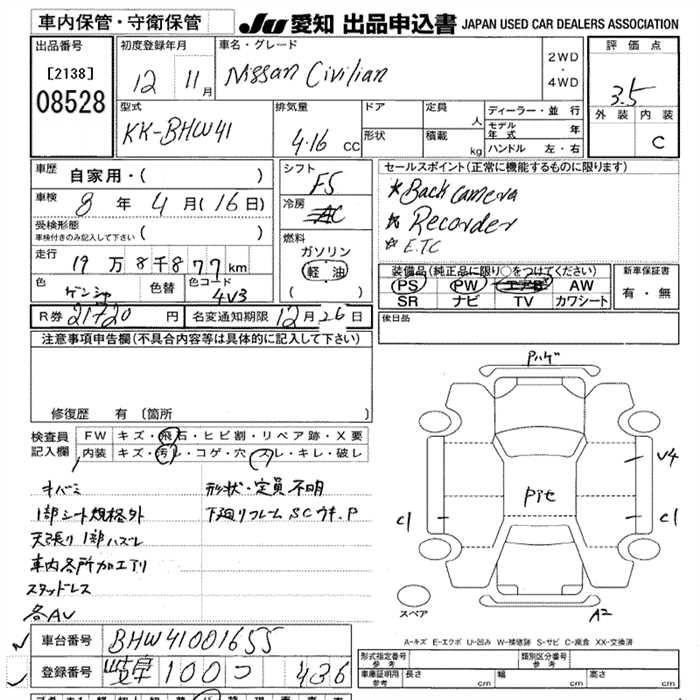 車内保管・守衛保管
JU 愛知 出品申込書 JAPAN USED CAR DEALERS ASSOCIATION
出品番号
[2138]
08528
初度登録年月
12 11月
車名・グレード
Nissan Civilian
2WD
・
4WD
評価点
3.5
外装 内装
C
型式
KK-BHW41
排気量
4.16 CC
ドア
形状
定員 人
積載 kg
ディーラー・並行
モデル年式 年
ハンドル 左・右
車歴
自家用・( )
車検 8年 4月(16日)
受検形態
車検付きのみ記入して下さい ( )
走行 19万8千877km
色 ゲンシャ 色替 色コード 4V3
シフト
F5
冷房
AC
燃料
ガソリン
軽油
( )
セールスポイント(正常に機能するものに限ります)
*Back camera
*Recorder
*E.TC
装備品(純正品に限り○をつけてください)
PS PW エアB AW
SR ナビ TV カワシート
新車保証書
有・無
R券 21720円 名変通知期限 12月26日
後日品
注意事項申告欄(不具合内容等は具体的に記入して下さい)
修復歴 有 (箇所 )
検査員
記入欄
FW キズ・飛石・ヒビ割・リペア跡・X要
内装 キズ・汚レ・コゲ・穴・スレ・キレ・破レ
オバミ
1部シート規格外
天張り1部ハズレ
車内各所加工アリ
スタッドレス
各AV
形状・定員不明
下廻りフレームSCウキ.P
Pハゲ
V4
Pite
C1
C1
A2
スペア
A-キズ E-エクボ U-凹み W-補修跡 S-サビ C-腐食 XX-交換済
車台番号 BHW41001655
登録番号 岐阜 100 つ 436
形式指定番号
参考
類別区分番号
参考
車庫証明用
参考
長さ cm 幅 cm 高さ cm